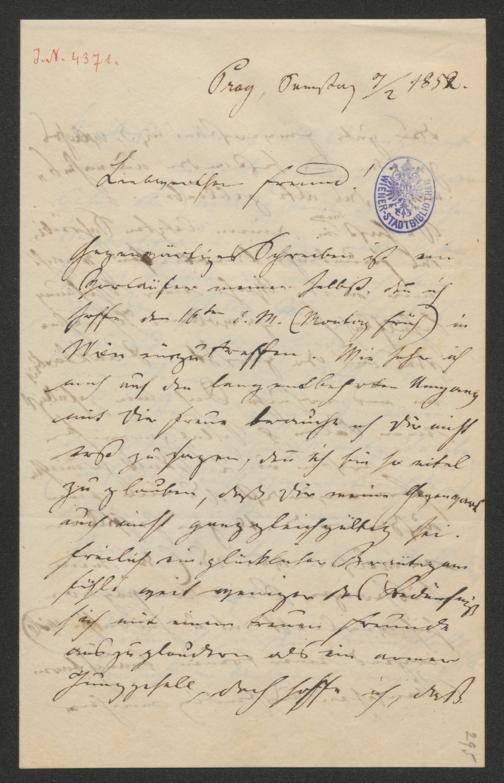 J.N. 4371.
Prag, Samstag 7/2 1852.
Liebwerther Freund!
WIENER-STADTBIBLIOTHEK
Gegenwärtiges Schreiben ist ein
Vorläufer meiner selbst, den ich
hoffe den 16ten d. M. (Montag früh) in
Wien einzutreffen. Wie sehr ich
mich auf den langentbehrten Umgang
mit Dir freue brauche ich Dir nicht
erst zu sagen, den ich bin so eitel
zu glauben, daß Dir meine Gegenwart
auch nicht ganz gleichgültig sei.
Freilich ein glücklicher Bräutigam
fühlt weit weniger das Bedürfniß
sich mit einem treuen Freunde
auszuplaudern als ein armer
Junggesell, doch hoffe ich, daß
295